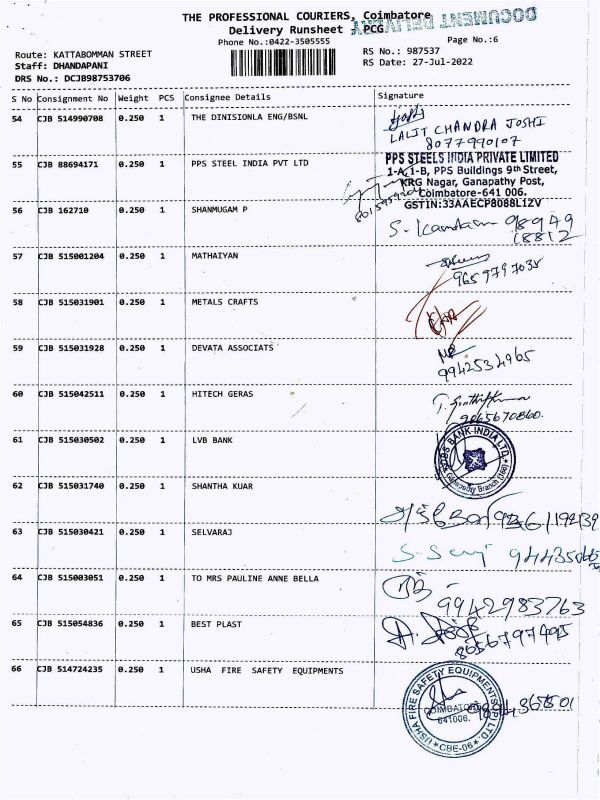 THE PROFESSIONAL COURIERS, Coimbatore
DOCUMENT DELIVERY
Delivery Runsheet PCG
Phone No.:0422-3505555
Page No.:6
Route: KATTABOMMAN STREET
RS No.: 987537
Staff: DHANDAPANI
RS Date: 27-Jul-2022
DRS No.: DCJB98753706
S No Consignment No Weight PCS Consignee Details Signature
54 CJB 514990708 0.250 1 THE DINISIONLA ENG/BSNL
Joshi
LALIT CHANDRA JOSHI
8077990107
55 CJB 88694171 0.250 1 PPS STEEL INDIA PVT LTD
PPS STEELS INDIA PRIVATE LIMITED
1-A,1-B, PPS Buildings 9th Street,
KRG Nagar, Ganapathy Post,
Coimbatore-641 006.
GSTIN:33AAECP8088L1ZV
56 CJB 162710 0.250 1 SHANMUGAM P
98949
18812
57 CJB 515001204 0.250 1 MATHAIYAN
9659797035
58 CJB 515031901 0.250 1 METALS CRAFTS
59 CJB 515031928 0.250 1 DEVATA ASSOCIATS
9942534965
60 CJB 515042511 0.250 1 HITECH GERAS
9865670860.
61 CJB 515030502 0.250 1 LVB BANK
DBS BANK INDIA LTD.
62 CJB 515031740 0.250 1 SHANTHA KUAR
63 CJB 515030421 0.250 1 SELVARAJ
64 CJB 515003051 0.250 1 TO MRS PAULINE ANNE BELLA
9942983763
65 CJB 515054836 0.250 1 BEST PLAST
8056797495
66 CJB 514724235 0.250 1 USHA FIRE SAFETY EQUIPMENTS
USHA FIRE SAFETY EQUIPMENTS
COIMBATORE
641006.
CBE-06